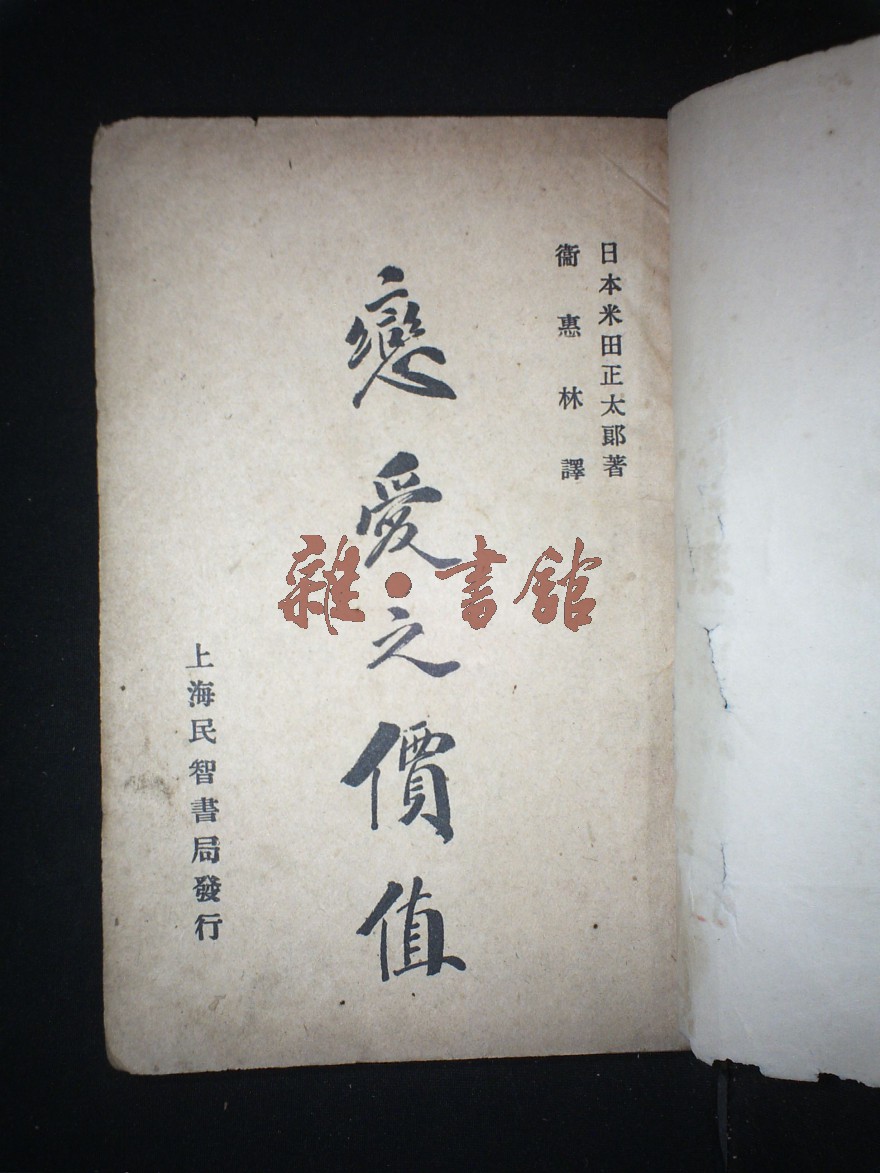 日本米田正太郎著
衞惠林譯
戀愛之價值
上海民智書局發行
雜·書館